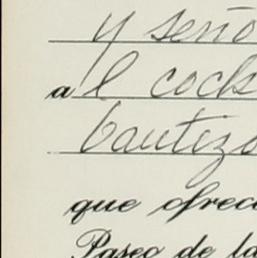 y seño
al cock
bautizo
que ofrec
Paseo de la